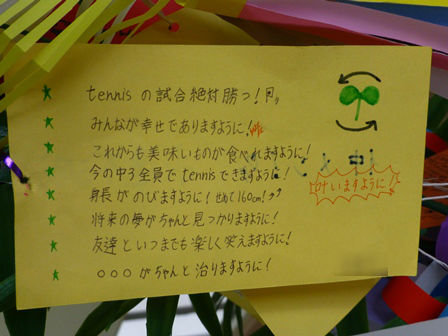 tennisの試合絶対勝つ!
みんなが幸せでありますように!
これからも美味いものが食べれますように!
今の中3全員でtennisできますように!
身長がのびますように!せめて160cm!
将来の夢がちゃんと見つかりますように!
友達といつまでも楽しく笑えますように!
○○○がちゃんと治りますように!
叶いますように!